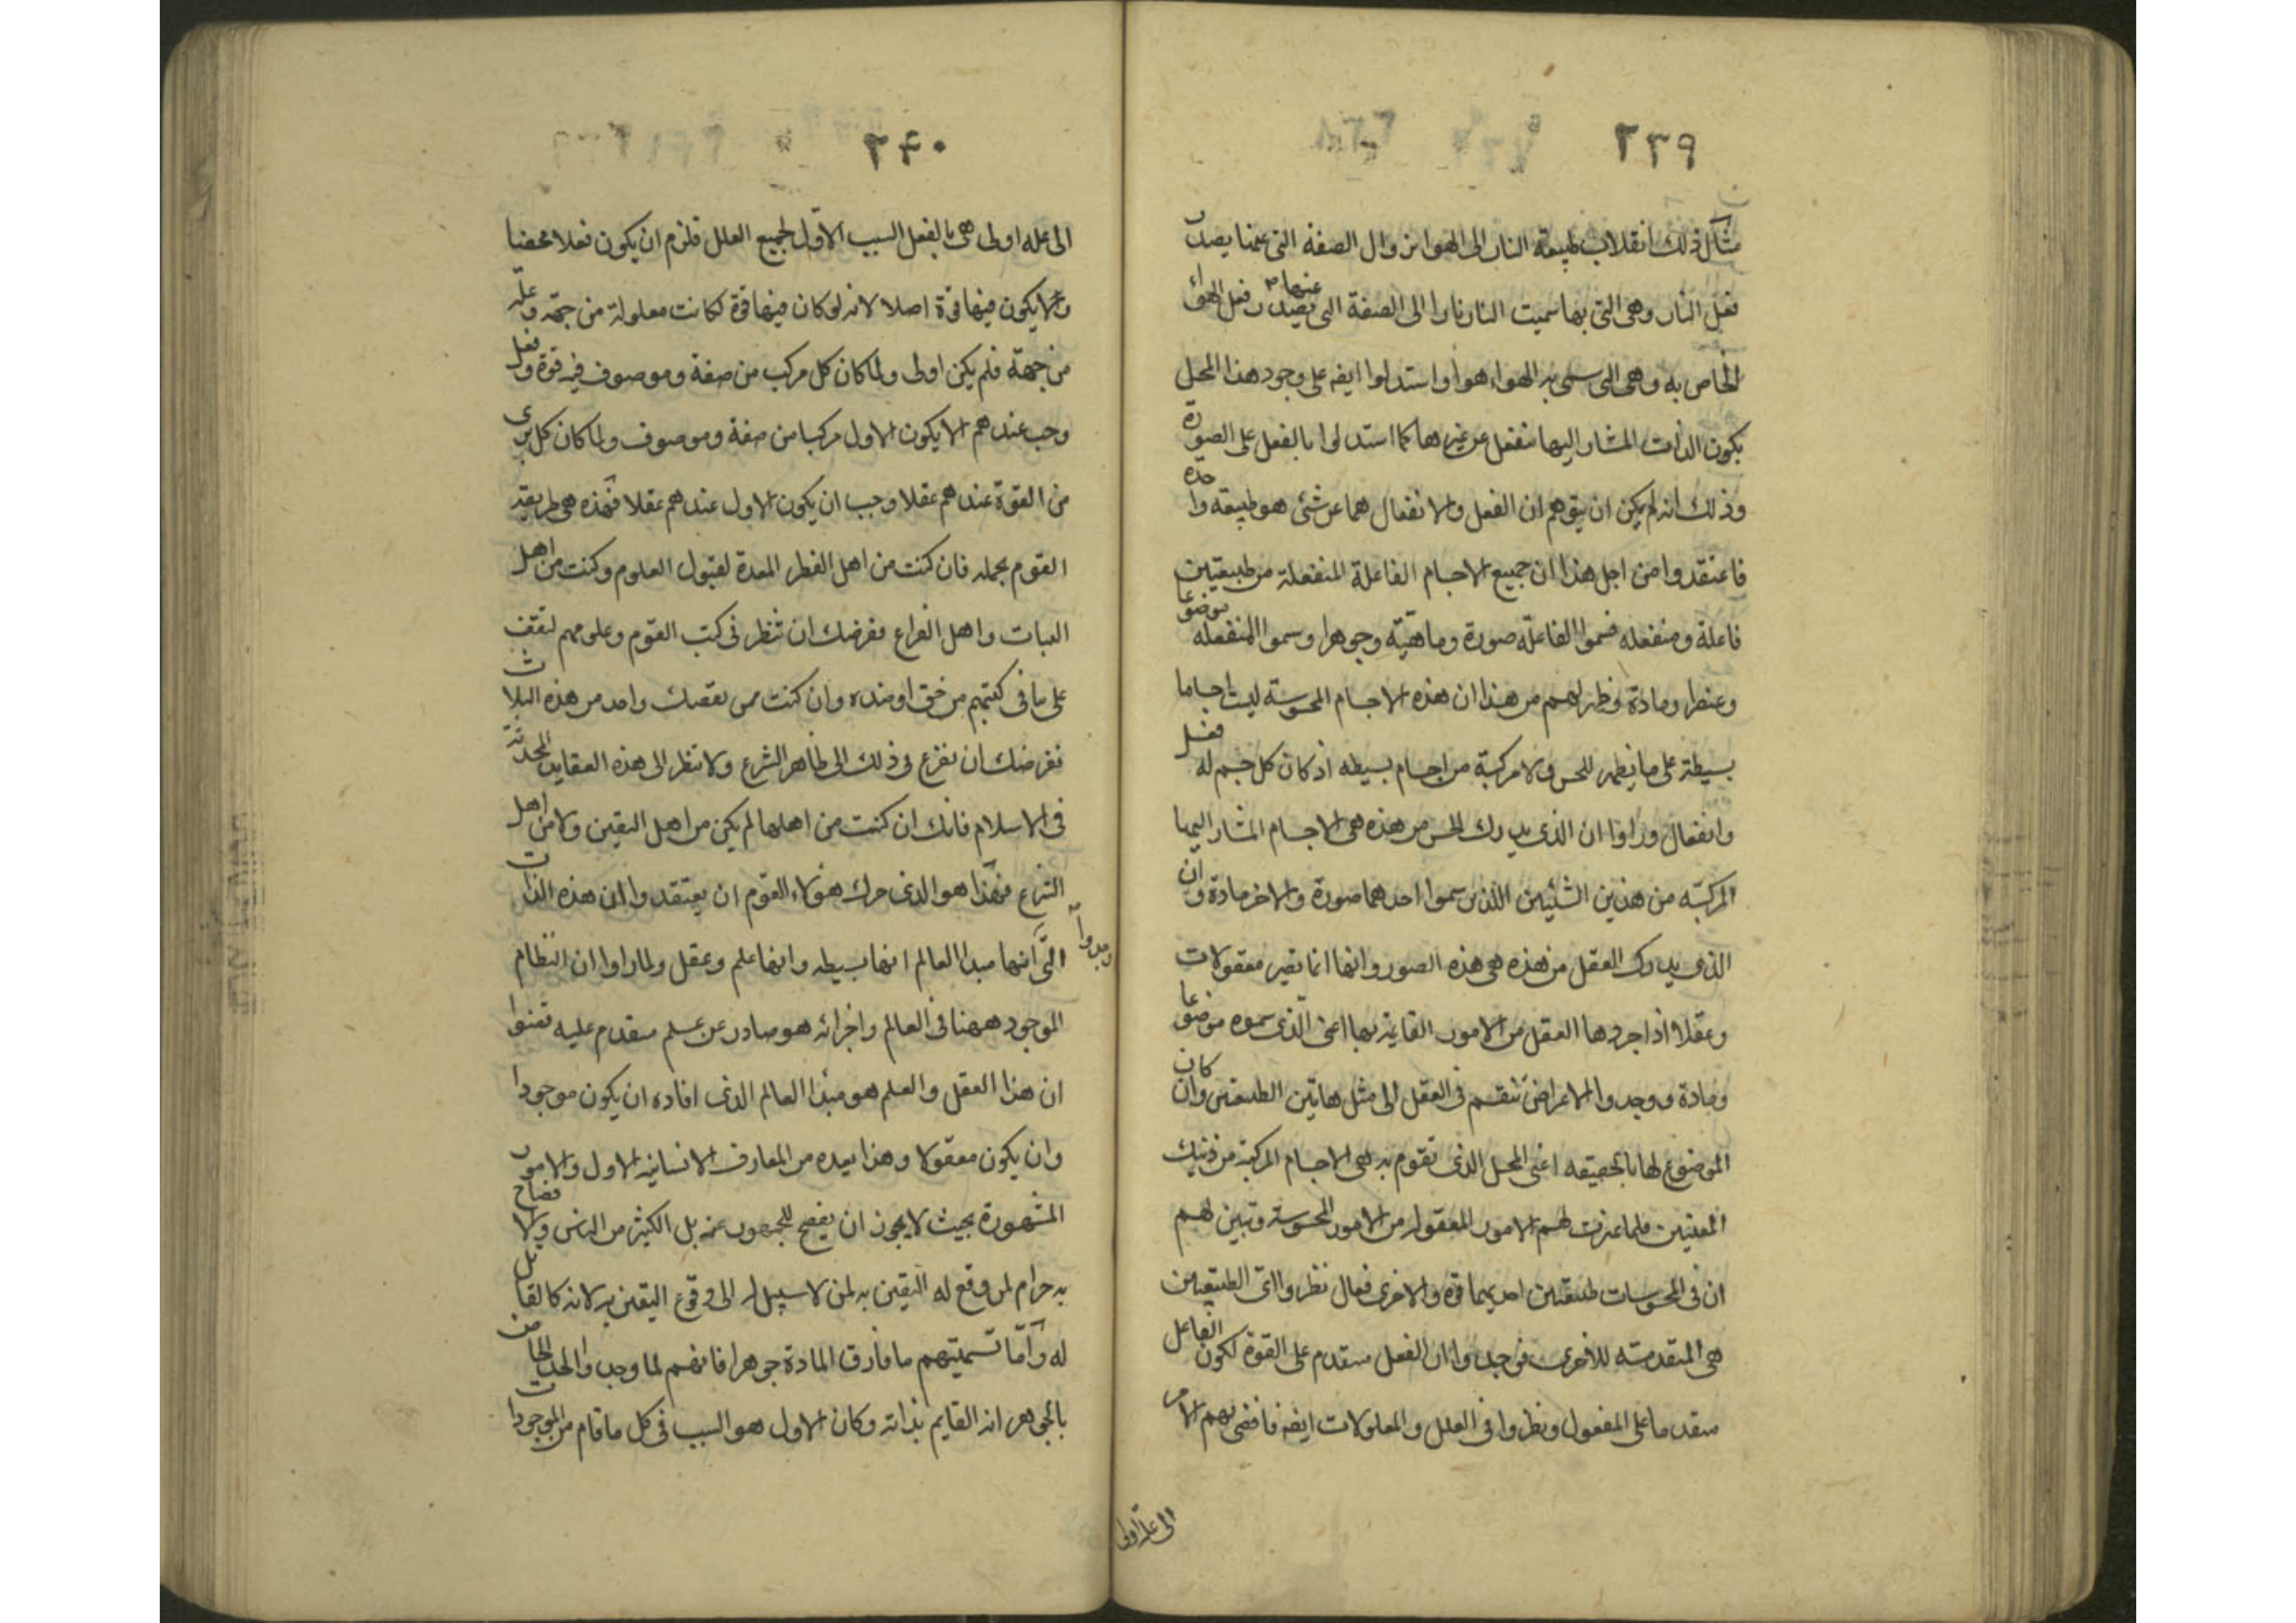 ٢٣٩
مثال ذلك انقلاب طبيعة النار الى الهوا بزوال الصفة التى عنها يصدر
فعل النار وهى التى بها سميت النار نارا الى الصفة التى عنها يصدر فعل الهواء
الخاص به وهى التى سمى به الهواء هواء واستدلوا ايضه على وجود هذا المحل
بكون الذات المشار اليها تنفعل عن غيرها كما استدلوا بالفعل على الصورة
وذلك انه لم يمكن ان يتوهم ان الفعل والانفعال هما عن شئ هو طبيعة واحدة
فاعتقدوا من اجل هذا ان جميع الاجسام الفاعلة المنفعلة من طبيعتين
فاعلة ومنفعله فسموا الفاعلة صورة وماهية وجوهرا وسموا المنفعله موضوعا
وعنصرا ومادة وظهر لهم من هذا ان هذه الاجسام المحسوسة ليست اجساما
بسيطة على ما يظهر للحس ولا مركبة من اجسام بسيطه اذ كان كل جسم له فعل
وانفعال وراوا ان الذى يدرك الحس من هذه هى الاجسام المشار اليها
المركبه من هذين الشئيين اللذين سموا احدهما صورة والاخر مادة وان
الذى يدرك العقل من هذه هى هذه الصور وانها انما تصير معقولات
وعقلا اذا جردها العقل من الامور القايمة بها اعنى الذى سموه موضوعا
ومادة ووجدوا الاعراض تنقسم فى العقل الى مثل هاتين الطبيعتين وان كان
الموضوع لها بالحقيقه اعنى المحل الذى تقوم به هى الاجسام المركبة من ذينك
المعنيين فلما تميزت لهم الامور المعقولة من الامور المحسوسة وتبين لهم
ان فى المحسوسات طبيعتين احديهما قوة والاخرى فعال نظروا اى الطبيعتين
هى المتقدمه للاخرى فوجدوا ان الفعل متقدم على القوة لكون الفاعل
متقدما على المفعول ونظروا فى العلل والمعلولات ايضه فافضى بهم الامر
الى علة اولى
٢٤٠
الى عله اولى هى بالفعل السبب الاول لجميع العلل فلزم ان يكون فعلا محضا
والا يكون فيها قوة اصلا لانه لو كان فيها قوة لكانت معلولة من جهة وعلة
من جهة فلم يكن اولى ولما كان كل مركب من صفة وموصوف فيه قوة وفعل
وجب عندهم الا يكون الاول مركبا من صفة وموصوف ولما كان كل برى
من القوة عندهم عقلا وجب ان يكون الاول عندهم عقلا فهذه هى طريقة
القوم بجمله فان كنت من اهل الفطر المعدة لقبول العلوم وكنت من اهل
الثبات واهل الفراغ ففرضك ان تنظر فى كتب القوم وعلومهم لتقف
على ما فى كتبهم من حق او ضده وان كنت ممن نقصك واحد من هذه الثلاث
ففرضك ان تفزع فى ذلك الى ظاهر الشرع ولا تنظر الى هذه العقايد المحدثة
فى الاسلام فانك ان كنت من اهلها لم يكن من اهل اليقين ولا من اهل
الشرع فهذا هو الذى حرك هؤلاء القوم ان يعتقدوا ان هذه الذات
وجدوا
التى انها مبدا العالم انها بسيطه وانها علم وعقل ولما راوا ان النظام
الموجود ههنا فى العالم واجزائه هو صادر عن علم متقدم عليه قضوا
ان هذا العقل والعلم هو مبدا العالم الذى افاده ان يكون موجودا
وان يكون معقولا وهذا بعيده من المعارف الانسانيه الاول والامور
المشهورة بحيث لا يجوز ان يفصح للجمهور عنه بل الكثير من الناس والافصاح
به حرام لمن وقع له اليقين به لمن لا سبيل له الى وقوع اليقين به لانه كالقاتل
له واما تسميتهم ما فارق المادة جوهرا فانهم لما وجدوا الحد الخاص
بالجوهر انه القايم بذاته وكان الاول هو السبب فى كل ما قام من الموجودات